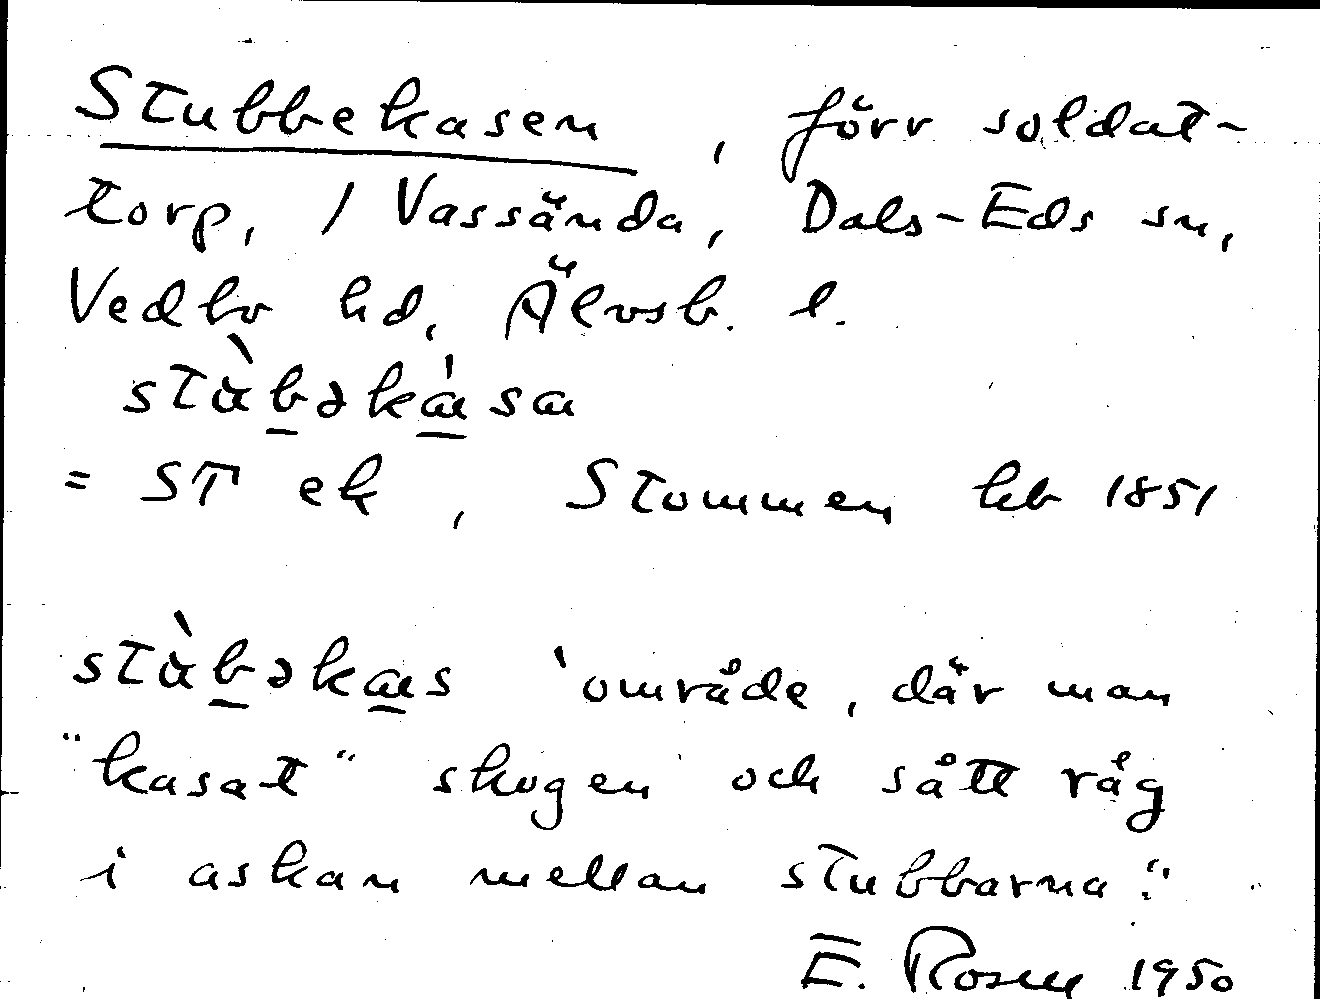 Stubbekasen, förr soldat-
torp, / Vassända, Dals-Eds sn,
Vedbo hd, Älvsb. l.
stὰbəkɑ̀sa
= ST ek, Stommen hb 1851
stὰbəkɑs 'område, där man
"kasat" skogen och sått råg
i askan mellan stubbarna."
E. Rosell 1950